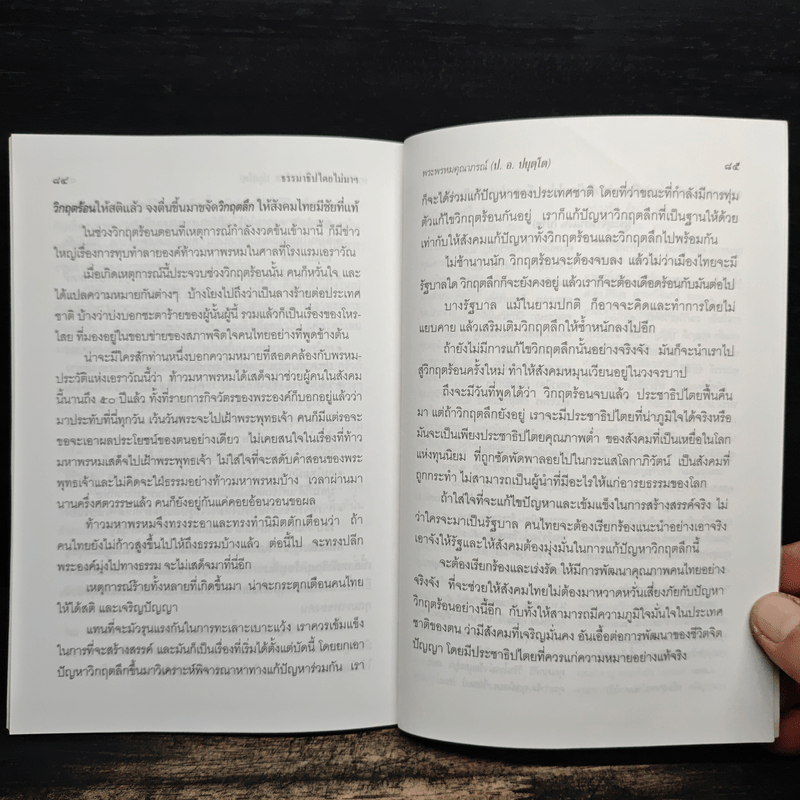 ๘๔ ธรรมาธิปไตยไม่มาฯ
วิกฤตร้อนให้สติแล้ว จงตื่นขึ้นมาขจัดวิกฤตลึก ให้สังคมไทยมีชัยที่แท้
ในช่วงวิกฤตร้อนตอนที่เหตุการณ์กำลังงวดข้นเข้ามานี้ ก็มีข่าว
ใหญ่เรื่องการทุบทำลายองค์ท้าวมหาพรหมในศาลที่โรงแรมเอราวัณ
เมื่อเกิดเหตุการณ์นี้ประจวบช่วงวิกฤตร้อนนั้น คนก็หวั่นใจ และ
ได้แปลความหมายกันต่างๆ บ้างโยงไปถึงว่าเป็นลางร้ายต่อประเทศ
ชาติ บ้างว่าบ่งบอกชะตาร้ายของผู้นั้นผู้นี้ รวมแล้วก็เป็นเรื่องของโหร-
ไสย ที่มองอยู่ในขอบข่ายของสภาพจิตใจคนไทยอย่างที่พูดข้างต้น
น่าจะมีใครสักท่านหนึ่งบอกความหมายที่สอดคล้องกับพรหม-
ประวัติแห่งเอราวัณนี้ว่า ท้าวมหาพรหมได้เสด็จมาช่วยผู้คนในสังคม
นี้นานถึง ๕๐ ปีแล้ว ทั้งที่รายการกิจวัตรของพระองค์ก็บอกอยู่แล้วว่า
มาประทับที่นี่ทุกวัน เว้นวันพระจะไปเฝ้าพระพุทธเจ้า คนก็มีแต่รอจะ
ขอจะเอาผลประโยชน์ของตนอย่างเดียว ไม่เคยสนใจในเรื่องที่ท้าว
มหาพรหมเสด็จไปเฝ้าพระพุทธเจ้า ไม่ใส่ใจที่จะสดับคำสอนของพระ
พุทธเจ้าและไม่คิดจะใฝ่ธรรมอย่างท้าวมหาพรหมบ้าง เวลาผ่านมา
นานครึ่งศตวรรษแล้ว คนก็ยังอยู่กันแค่คอยอ้อนวอนขอผล
ท้าวมหาพรหมจึงทรงระอาและทรงทำนิมิตตักเตือนว่า ถ้า
คนไทยยังไม่ก้าวสูงขึ้นไปให้ถึงธรรมบ้างแล้ว ต่อนี้ไป จะทรงปลีก
พระองค์มุ่งไปทางธรรม จะไม่เสด็จมาที่นี่อีก
เหตุการณ์ร้ายทั้งหลายที่เกิดขึ้นมา น่าจะกระตุกเตือนคนไทย
ให้ได้สติ และเจริญปัญญา
แทนที่จะมัวรุนแรงกันในการทะเลาะเบาะแว้ง เราควรเข้มแข็ง
ในการที่จะสร้างสรรค์ และมันก็เป็นเรื่องที่เริ่มได้ตั้งแต่บัดนี้ โดยยกเอา
ปัญหาวิกฤตลึกขึ้นมาวิเคราะห์พิจารณาหาทางแก้ปัญหาร่วมกัน เรา
พระพรหมคุณาภรณ์ (ป. อ. ปยุตฺโต) ๘๕
ก็จะได้ร่วมแก้ปัญหาของประเทศชาติ โดยที่ว่าขณะที่กำลังมีการทุ่ม
ตัวแก้ไขวิกฤตร้อนกันอยู่ เราก็แก้ปัญหาวิกฤตลึกที่เป็นฐานให้ด้วย
เท่ากับให้สังคมแก้ปัญหาทั้งวิกฤตร้อนและวิกฤตลึกไปพร้อมกัน
ไม่ช้านานนัก วิกฤตร้อนจะต้องจบลง แล้วไม่ว่าเมืองไทยจะมี
รัฐบาลใด วิกฤตลึกก็จะยังคงอยู่ แล้วเราก็จะต้องเดือดร้อนกับมันต่อไป
บางรัฐบาล แม้ในยามปกติ ก็อาจจะคิดและทำการโดยไม่
แยบคาย แล้วเสริมเติมวิกฤตลึกให้ซ้ำหนักลงไปอีก
ถ้ายังไม่มีการแก้ไขวิกฤตลึกนั้นอย่างจริงจัง มันก็จะนำเราไป
สู่วิกฤตร้อนครั้งใหม่ ทำให้สังคมหมุนเวียนอยู่ในวงจรบาป
ถึงจะมีวันที่พูดได้ว่า วิกฤตร้อนจบแล้ว ประชาธิปไตยฟื้นคืน
มา แต่ถ้าวิกฤตลึกยังอยู่ เราจะมีประชาธิปไตยที่น่าภูมิใจได้จริงหรือ
มันจะเป็นเพียงประชาธิปไตยคุณภาพต่ำ ของสังคมที่เป็นเหยื่อในโลก
แห่งทุนนิยม ที่ถูกซัดพัดพาลอยไปในกระแสโลกาภิวัตน์ เป็นสังคมที่
ถูกกระทำ ไม่สามารถเป็นผู้นำที่มีอะไรให้แก่อารยธรรมของโลก
ถ้าใส่ใจที่จะแก้ไขปัญหาและเข้มแข็งในการสร้างสรรค์จริง ไม่
ว่าใครจะมาเป็นรัฐบาล คนไทยจะต้องเรียกร้องแนะนำอย่างเอาจริง
เอาจังให้รัฐและให้สังคมต้องมุ่งมั่นในการแก้ปัญหาวิกฤตลึกนี้
จะต้องเรียกร้องและเร่งรัด ให้มีการพัฒนาคุณภาพคนไทยอย่าง
จริงจัง ที่จะช่วยให้สังคมไทยไม่ต้องมาหวาดหวั่นเสี่ยภัยกับปัญหา
วิกฤตร้อนอย่างนี้อีก กับทั้งให้สามารถมีความภูมิใจมั่นใจในประเทศ
ชาติของตน ว่ามีสังคมที่เจริญมั่นคง อันเอื้อต่อการพัฒนาของชีวิตจิต
ปัญญา โดยมีประชาธิปไตยที่ควรแก่ความหมายอย่างแท้จริง